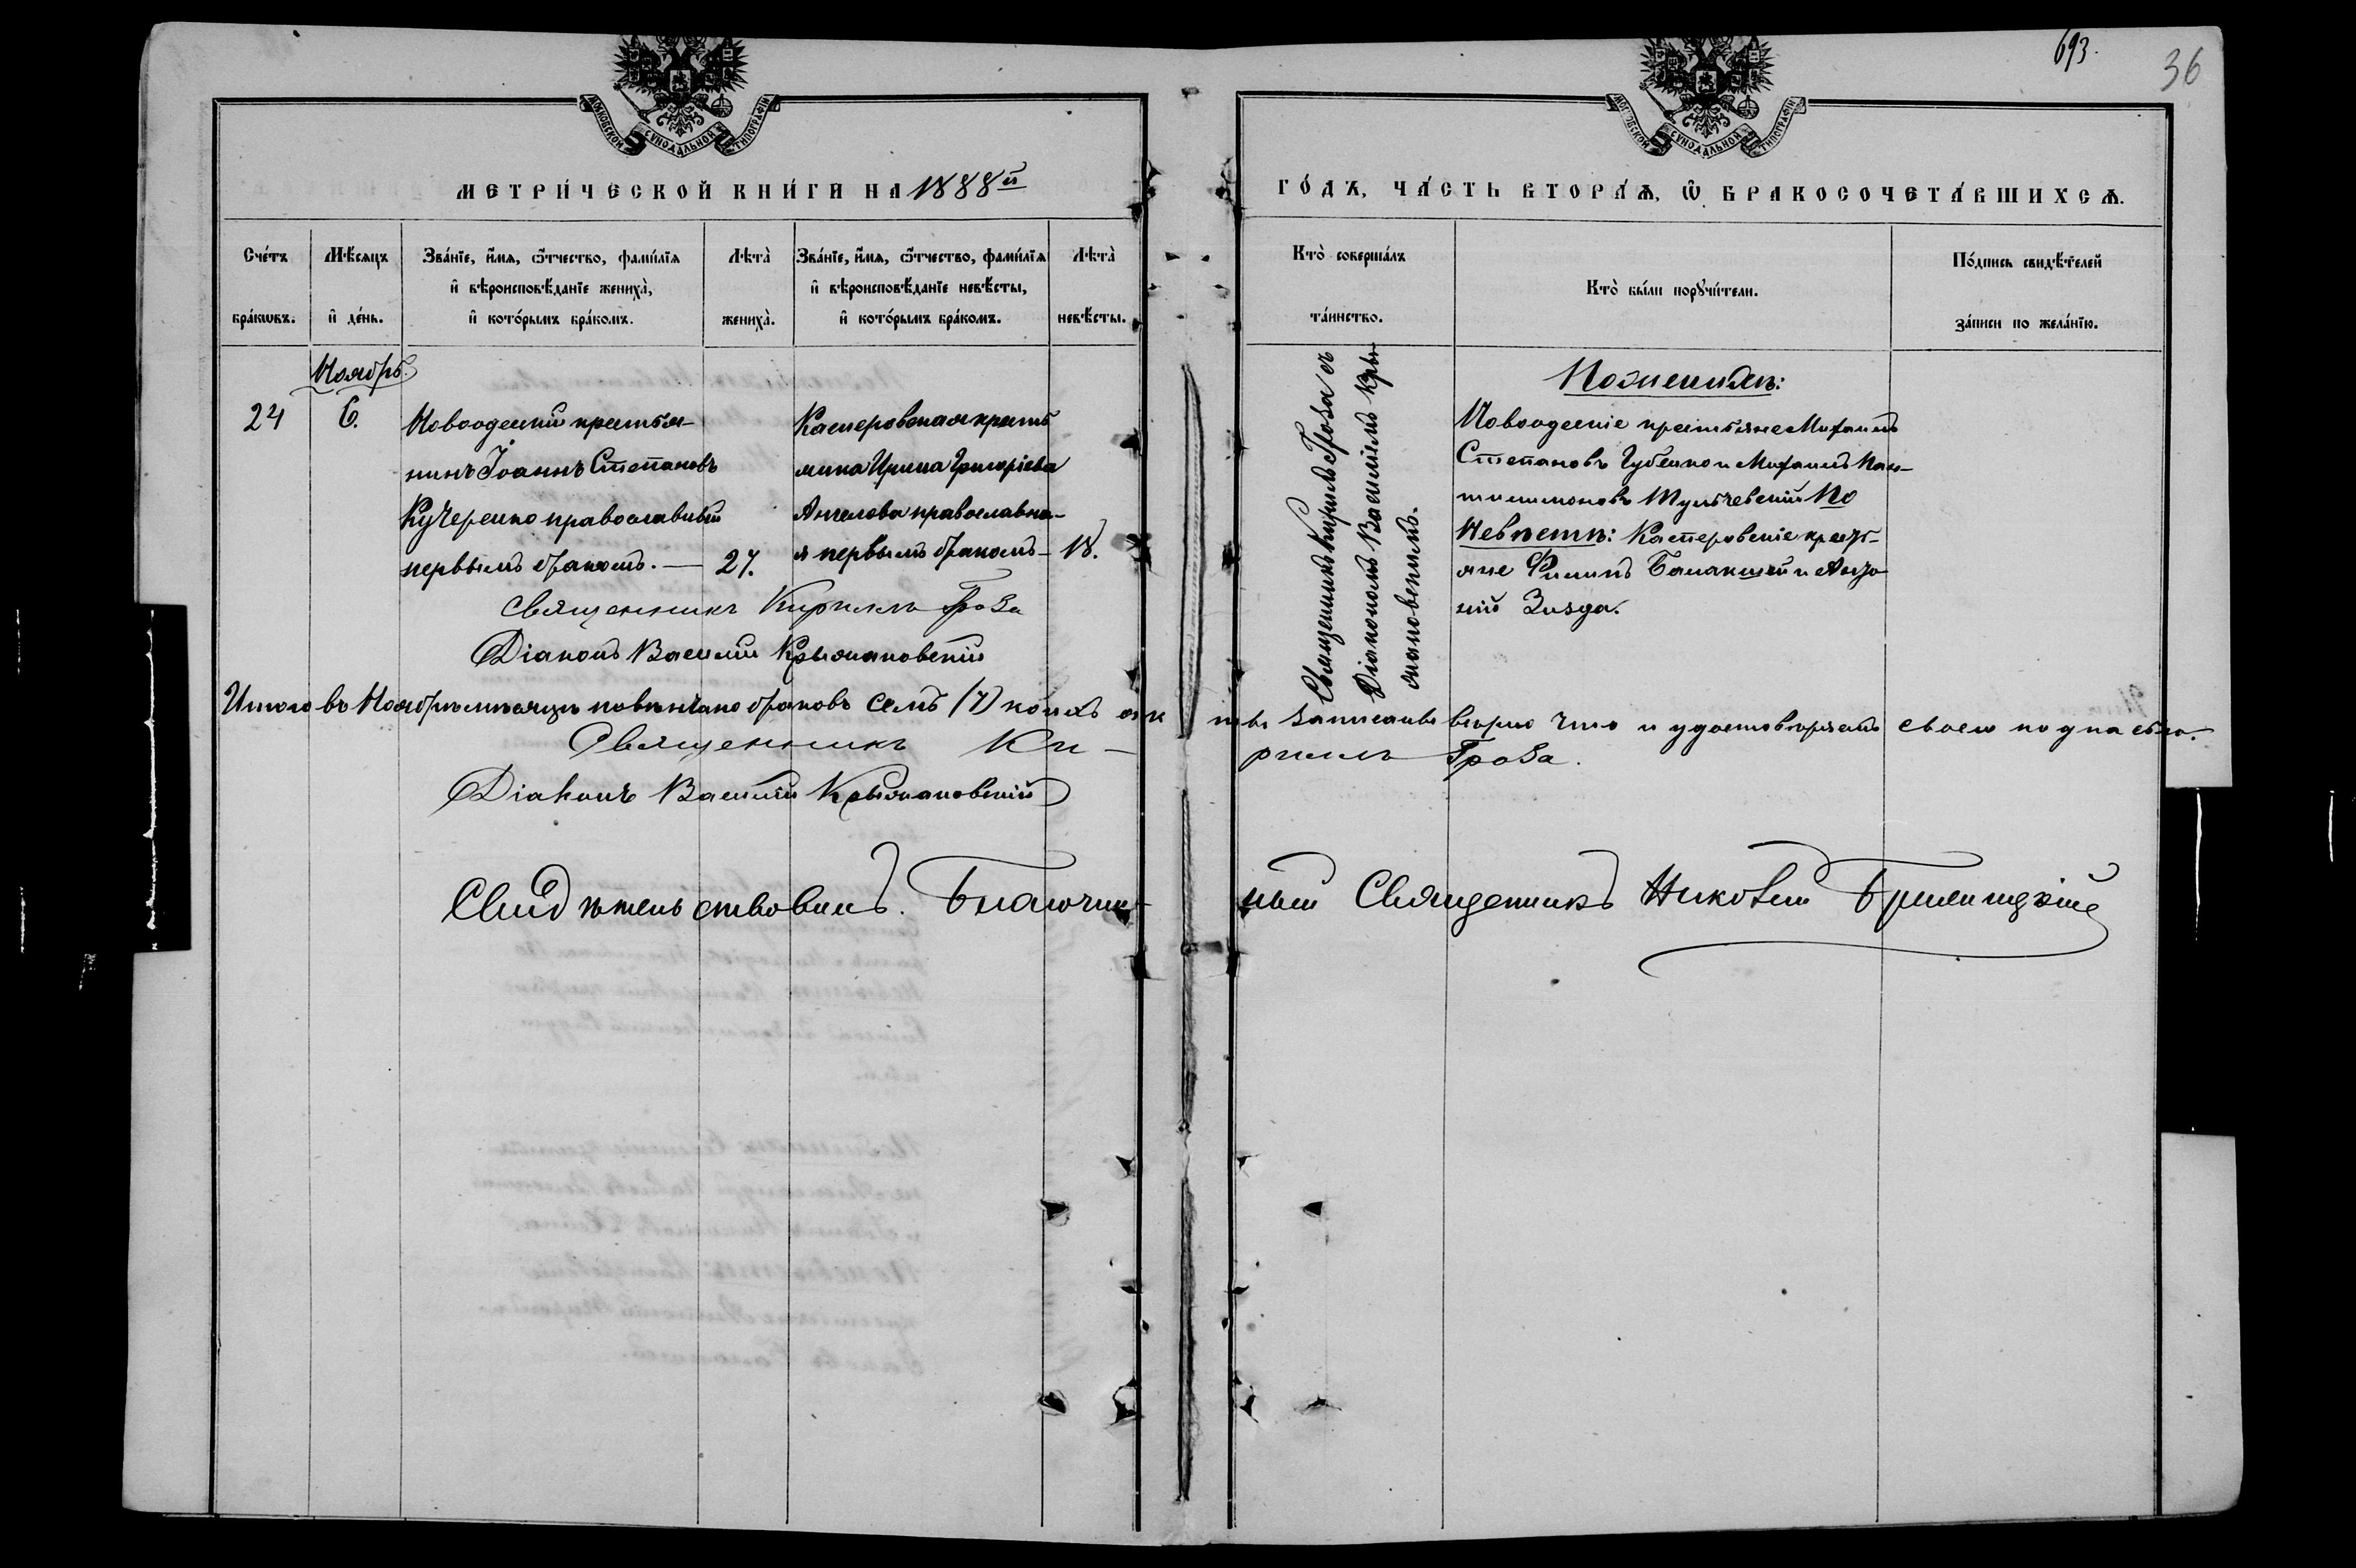 693.
36
МОСКОВСКОЙ СУНОДАЛЬНОЙ ТИПОГРАФІИ
МОСКОВСКОЙ СУНОДАЛЬНОЙ ТИПОГРАФІИ
МЕТРИ́ЧЕСКОЙ КНИ́ГИ НА 1888й
ГО́ДЪ, ЧА́СТЬ ВТОРА́Ѧ, Ѡ БРАКОСОЧЕТА́ВШИХСѦ.
Сче́тъ бра́кѡвъ.
Мѣ́сяцъ и҆ де́нь.
Зва́нїе, и҆́мѧ, ѻ҆́тчество, фами́лїѧ
и҆ вѣроисповѣ́данїе жениха̀,
и҆ кото́рымъ бра́комъ.
Лѣта̀ жениха̀.
Зва́нїе, и҆́мѧ, ѻ҆́тчество, фами́лїѧ
и҆ вѣроисповѣ́данїе невѣ́сты,
и҆ кото́рымъ бра́комъ.
Лѣта̀ невѣ́сты.
Кто̀ соверша́лъ та́инство.
Кто̀ бы́ли порꙋчи́тели.
По́дпись свидѣ́телей за́писи по жела́нїю.
Ноябрь.
24
6.
Новоодескій крестья-
нинъ Іоаннъ Степановъ
Кучеренко православный
первымъ бракомъ. —
27.
Касперовская кресть
янка Ирина Григоріева
Ангелова православна-
я первымъ бракомъ —
18.
Священникъ Кириллъ Гроза съ
Діакономъ Василіемъ Кры-
жановскимъ.
По женихѣ:
Новоодескіе крестьяне Михаилъ
Степановъ Губенко и Михаилъ Пан-
тилимоновъ Тульчевскій По
Невѣстѣ: Касперовскіе крест-
яне Филипъ Балакшей и Анто
ній Зизда.
Священникъ Кириллъ Гроза
Діаконъ Василій Крыжановскій
Итого въ Ноябрѣ мѣсяцѣ повѣнчано браковъ семь (7) коихъ ак ты записаны вѣрно что и удостовѣряемъ своею подписью.
Священникъ Ки- риллъ Гроза.
Діаконъ Василій Крыжановскій
Свидѣтельствовалъ. Благочин- ный Священникъ Николай